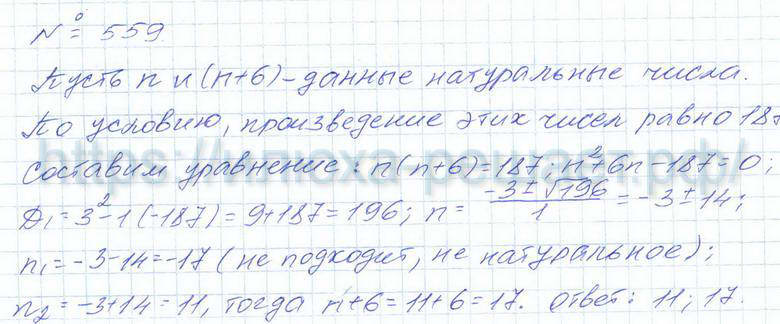 № 559
Пусть n и (n+6) – данные натуральные числа.
По условию, произведение этих чисел равно 187
составим уравнение: n(n+6)=187; n²+6n-187=0;
D₁=3²-1(-187)=9+187=196; n= (-3±√196)/1 = -3±14;
n₁=-3-14=-17 (не подходит, не натуральное);
n₂=-3+14=11, тогда n+6=11+6=17. ответ: 11; 17.
https://илюха-решает.рф/